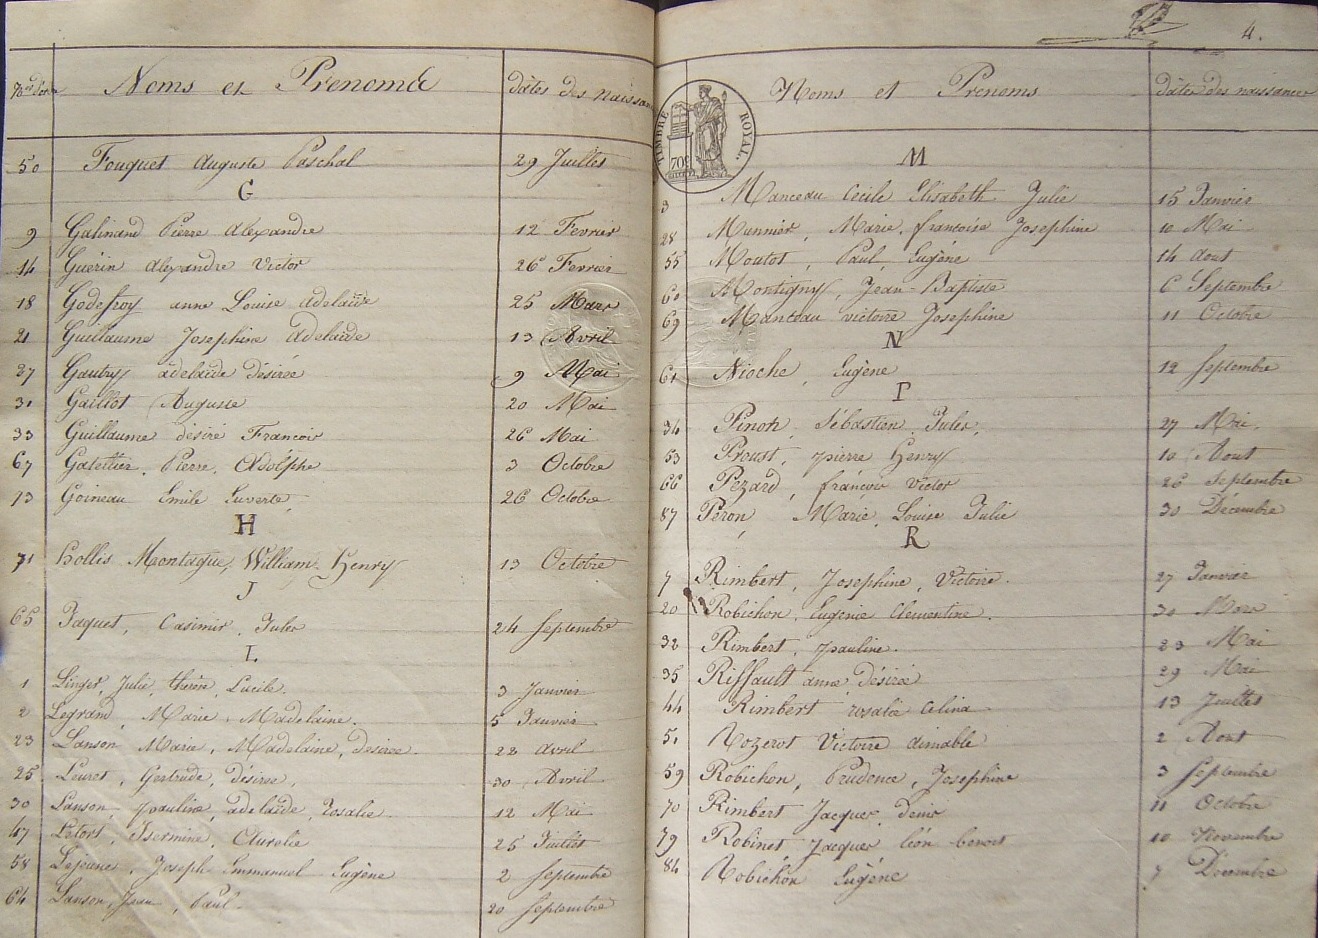 Noms et Prenoms
dâtes des naissan
50 Fouquet Auguste Paschal 29 Juillet
G
9 Galinand Pierre Alexandre 12 Fevrier
14 Guerin Alexandre Victor 26 Fevrier
18 Godefroy anne Louise adelaïde 25 Mars
21 Guillaume Josephine Adelaïde 13 Avril
27 Gautry adelaïde désirée 9 Mai
31 Gaillot Auguste 20 Mai
33 Guillaume désiré François 26 Mai
67 Galettier, Pierre, Adolphe 3 Octobre
73 Goineau Emile 26 Octobre
H
71 hollis Montague, William, Henry 13 Octobre
J
65 Jaquet, Casimir, Jules 24 Septembre
L
1 Linger, Julie, Lucile. 3 Janvier
2 Legrand, Marie, Madelaine. 5 Janvier
23 Lanson Marie, Madelaine, desirée 22 avril
25 Leuret, Gertrude, désirée, 30 Avril
30 Lanson, pauline, adelaïde, rosalie 12 Mai
47 Letort, Isermine, Aurelie 25 Juillet
58 Lejeune, Joseph Emmanuel Eugène 2 Septembre
64 Lanson, Jean, Paul 20 Septembre
4.
Noms et Prenoms
dâtes des naissances
TIMBRE ROYAL.
70
M
3 Manceau Cecile Elisabeth Julie 15 Janvier
28 Munnier, Marie, françoise Josephine 10 Mai
55 Moutot, Paul, Eugène 14 Aout
60 Montigny, Jean-Baptiste 6 Septembre
69 Manteau victoire Josephine 11 Octobre
N
61 Nioche, Eugène 12 Septembre
P
34 Pinot, Sébastien, Jules, 27 Mai.
53 Proust, pierre Henry 10 Aout
66 Pezard, françois Victor 26 Septembre
87 Peron, Marie, Louise Julie 30 Décembre
R
7 Rimbert, Josephine, Victoire. 27 Janvier
20 Robichon, Eugenie Clementine. 30 Mars
32 Rimbert, pauline. 23 Mai
35 Riffault anne, désirée 29 Mai
44 Rimbert rosalie Celina 13 Juillet
51 Rozerot Victoire aimable 2 Aout
59 Robichon, Prudence, Josephine 3 Septembre
70 Rimbert Jacques denis 11 Octobre
79 Robinet Jacques léon benoit 10 Novembre
84 Robichon Eugène 7 Décembre